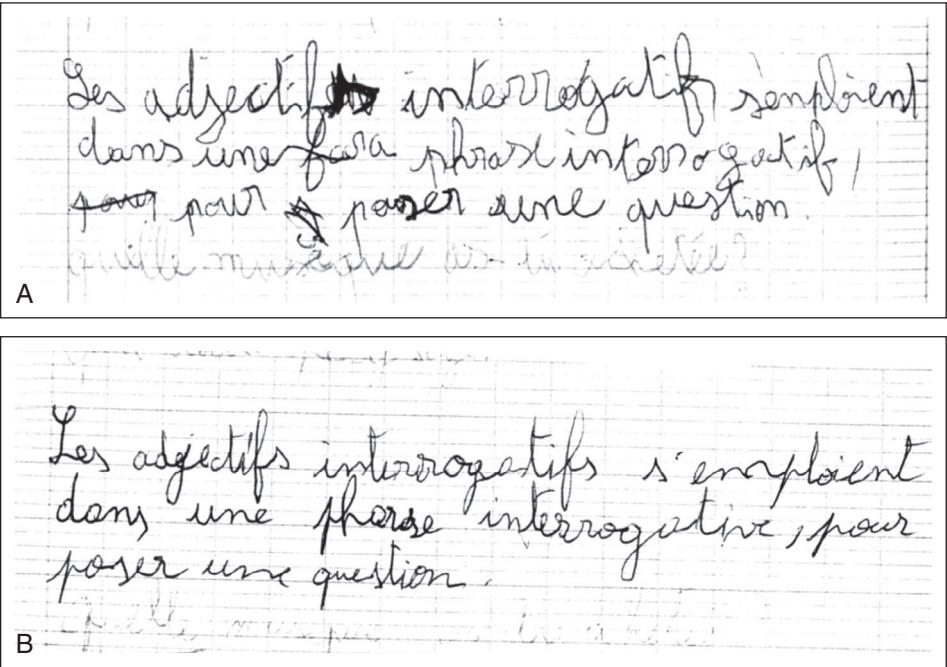 Les adjectifs interrogatifs s'enploient
dans une phrase interrogatif,
pour pour poser une question.
quelle musique as tu achetée?
A
Les adjectifs interrogatifs s'emploient
dans une phrase interrogative, pour
poser une question.
quelle musique
B